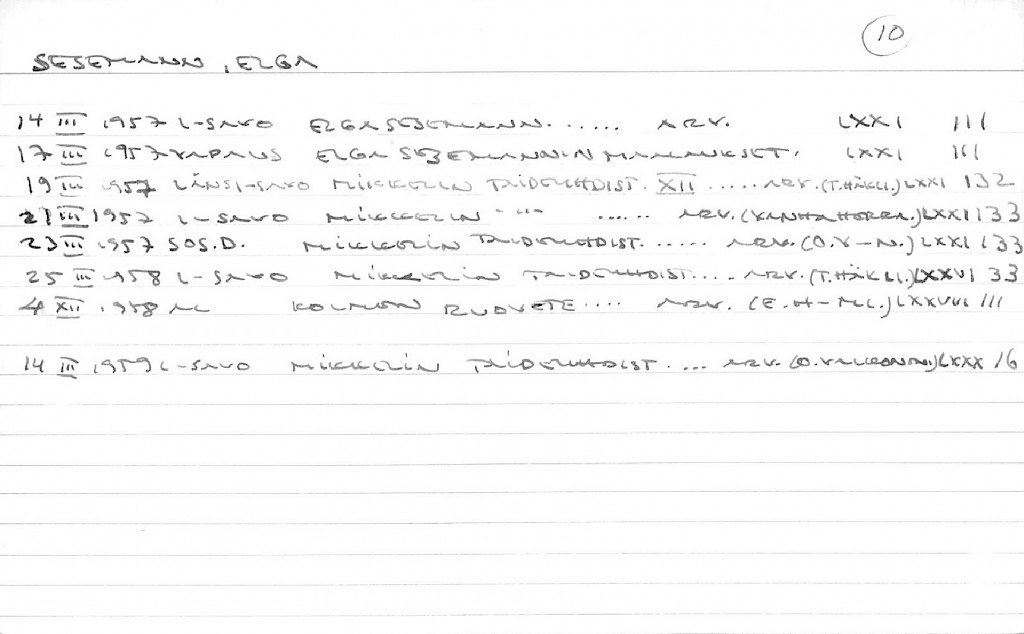 10
SESEMANN, ELGA
14 III 1957 L-SAVO ELGA SESEMANN. ..... ARV. LXXI 111
17 III 1957 VAPAUS ELGA SESEMANNIN MAALAUKSET. LXXI 111
19 III 1957 LÄNSI-SAVO MIKKELIN TAIDEYHDIST. XII ..... ARV. (T. HÄKLI.) LXXI 132
21 III 1957 L-SAVO MIKKELIN -"- ..... ARV. (VANHA HERRA.) LXXI 133
23 III 1957 SOS.D. MIKKELIN TAIDEYHDIST. ..... ARV. (O.V-N.) LXXI 133
25 III 1958 L-SAVO MIKKELIN TAIDEYHDIST.... ARV. (T. HÄKLI.) LXXVI 33
4 XII 1958 KOLMEN .... ARV. (E.H-) LXXVIII 111
14 III 1959 L-SAVO MIKKELIN TAIDEYHDIST. ... ARV. (O. VALKONEN.) LXXX 16